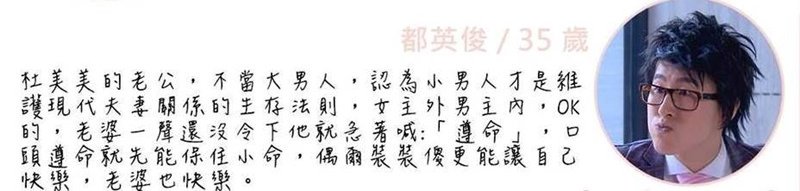 都英俊 / 35 歲
杜美美的老公，不當大男人，認為小男人才是維
護現代夫妻關係的生存法則，女主外男主內，OK
的，老婆一聲還沒令下他就急著喊:「遵命」，口
頭遵命就先能保住小命，偶爾裝裝傻更能讓自己
快樂，老婆也快樂。